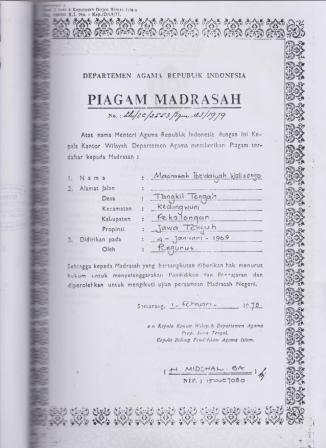 DEPARTEMEN AGAMA REPUBLIK INDONESIA
PIAGAM MADRASAH
No. :
Atas nama Menteri Agama Republik Indonesia dengan ini Ke-
pala Kantor Wilayah Departemen Agama memberikan Piagam ter-
daftar kepada Madrasah :
1. Nama : Madrasah Ibtidaiyah Walisongo
2. Alamat Jalan :
Desa : Tangkil Tengah
Kecamatan : Kedungwuni
Kabupaten : Pekalongan
Propinsi : Jawa Tengah
3. Didirikan pada : 4 - Januari - 1969
Oleh : Pengurus
Sehingga kepada Madrasah yang bersangkutan diberikan hak menurut
hukum untuk menyelenggarakan Pendidikan dan Pengajaran dan
diperolehkan untuk mengikuti ujian persamaan Madrasah Negeri.
Semarang, 1 Februari
a.n Kepala Kantor Wilayah Departemen Agama
Prop. Jawa Tengah,
Kepala Bidang Pendidikan Agama Islam,
( H. MIDCHAL. BA )
NIP. : 150027080